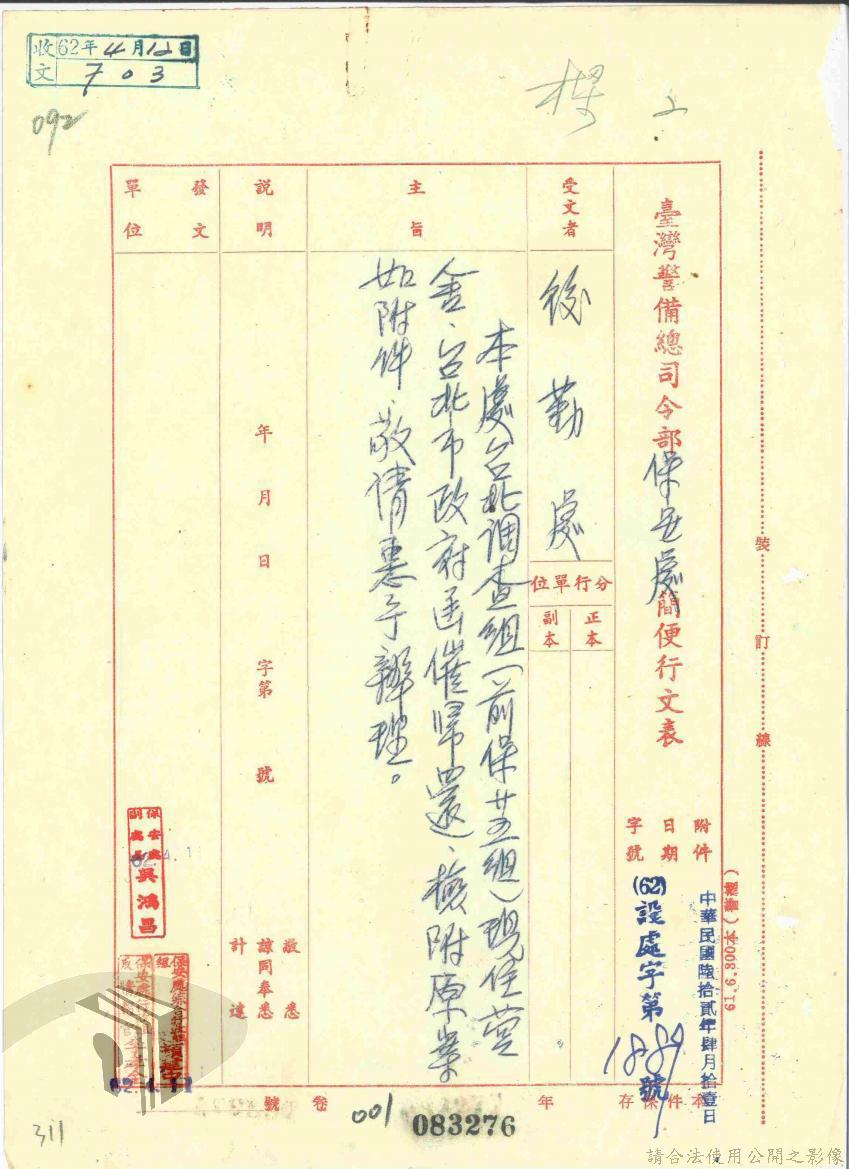 收文 62年4月12日
703
092
臺灣警備總司令部保安處簡便行文表
受文者
後勤處
分行單位
正本
副本
附件
日期
字號
中華民國陸拾貳年肆月拾壹日
(62)設處字第1889號
主旨
本處台北調查組(前保廿五組)現住營
舍、台北市政府函催歸還、檢附原案
如附件、敬請惠予辦理。
說明
年月日字第號
敬悉
諒同奉悉
計達
發文單位
保安處
副處長
吳鴻昌
62.4.11
裝訂線
本件保存年
卷號
001
083276
311
請合法使用公開之影像